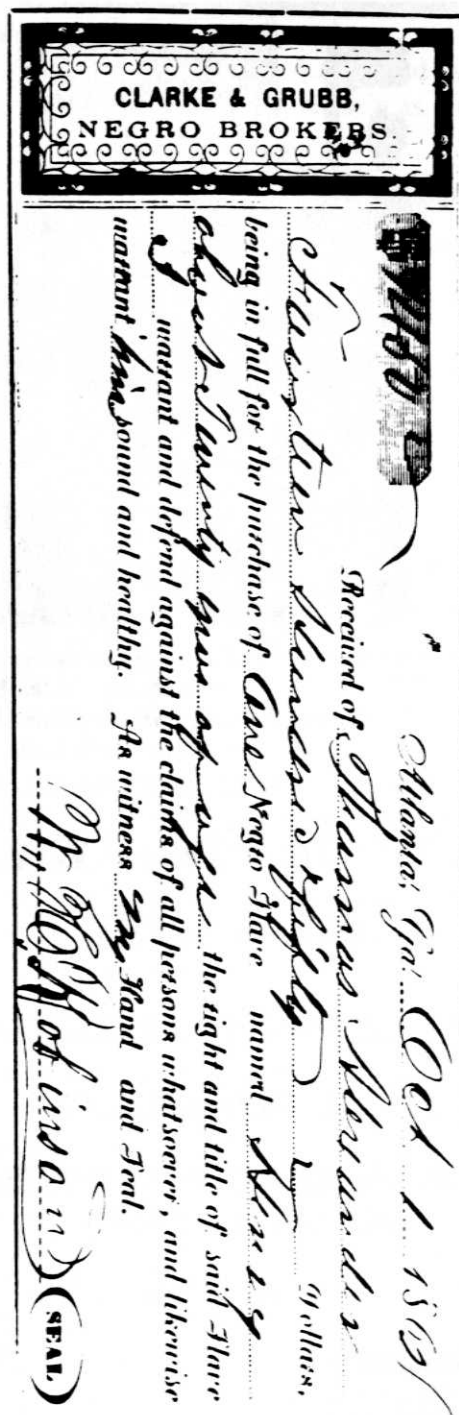 CLARKE & GRUBB,
NEGRO BROKERS.
Atlanta, Ga. Oct 1 186
Received of Thomas
Hundred Fifty Dollars,
being in full for the purchase of One Negro Slave named Henry
about Twenty years of age the right and title of said Slave
I warrant and defend against the claims of all persons whatsoever, and likewise
warrant him sound and healthy. As witness my Hand and Seal.
Robinson
SEAL